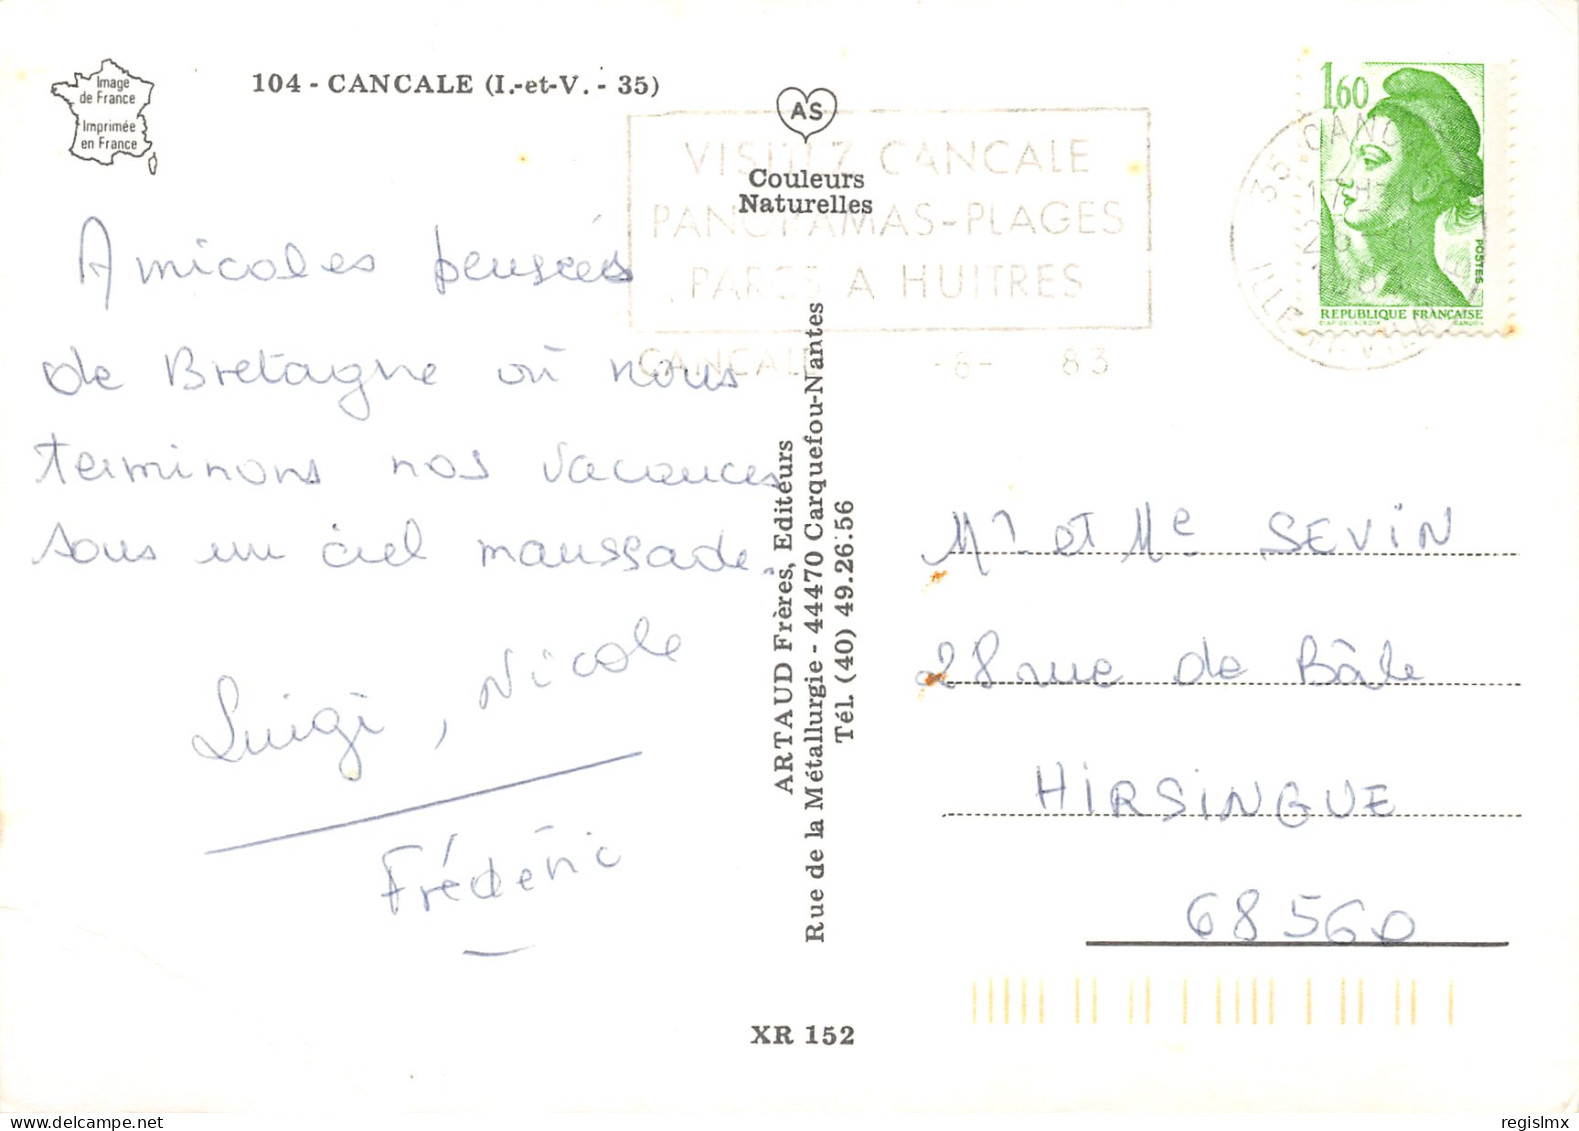 Image
de France
Imprimée
en France
104 - CANCALE (I.-et-V. - 35)
AS
Couleurs
Naturelles
VISITEZ CANCALE
PANORAMAS-PLAGES
PARCS A HUITRES
CANCALE -6- 83
1,60
POSTES
REPUBLIQUE FRANÇAISE
35 CANCALE
17H
1983
ILLE ET VILAINE
Amicales pensées
de Bretagne où nous
terminons nos vacances
sous un ciel maussade.
Luigi, Nicole
Frédéric
ARTAUD Frères, Editeurs
Rue de la Métallurgie - 44470 Carquefou-Nantes
Tél. (40) 49.26.56
Mr et Me SEVIN
28 rue de Bâle
HIRSINGUE
68560
XR 152
regislmx